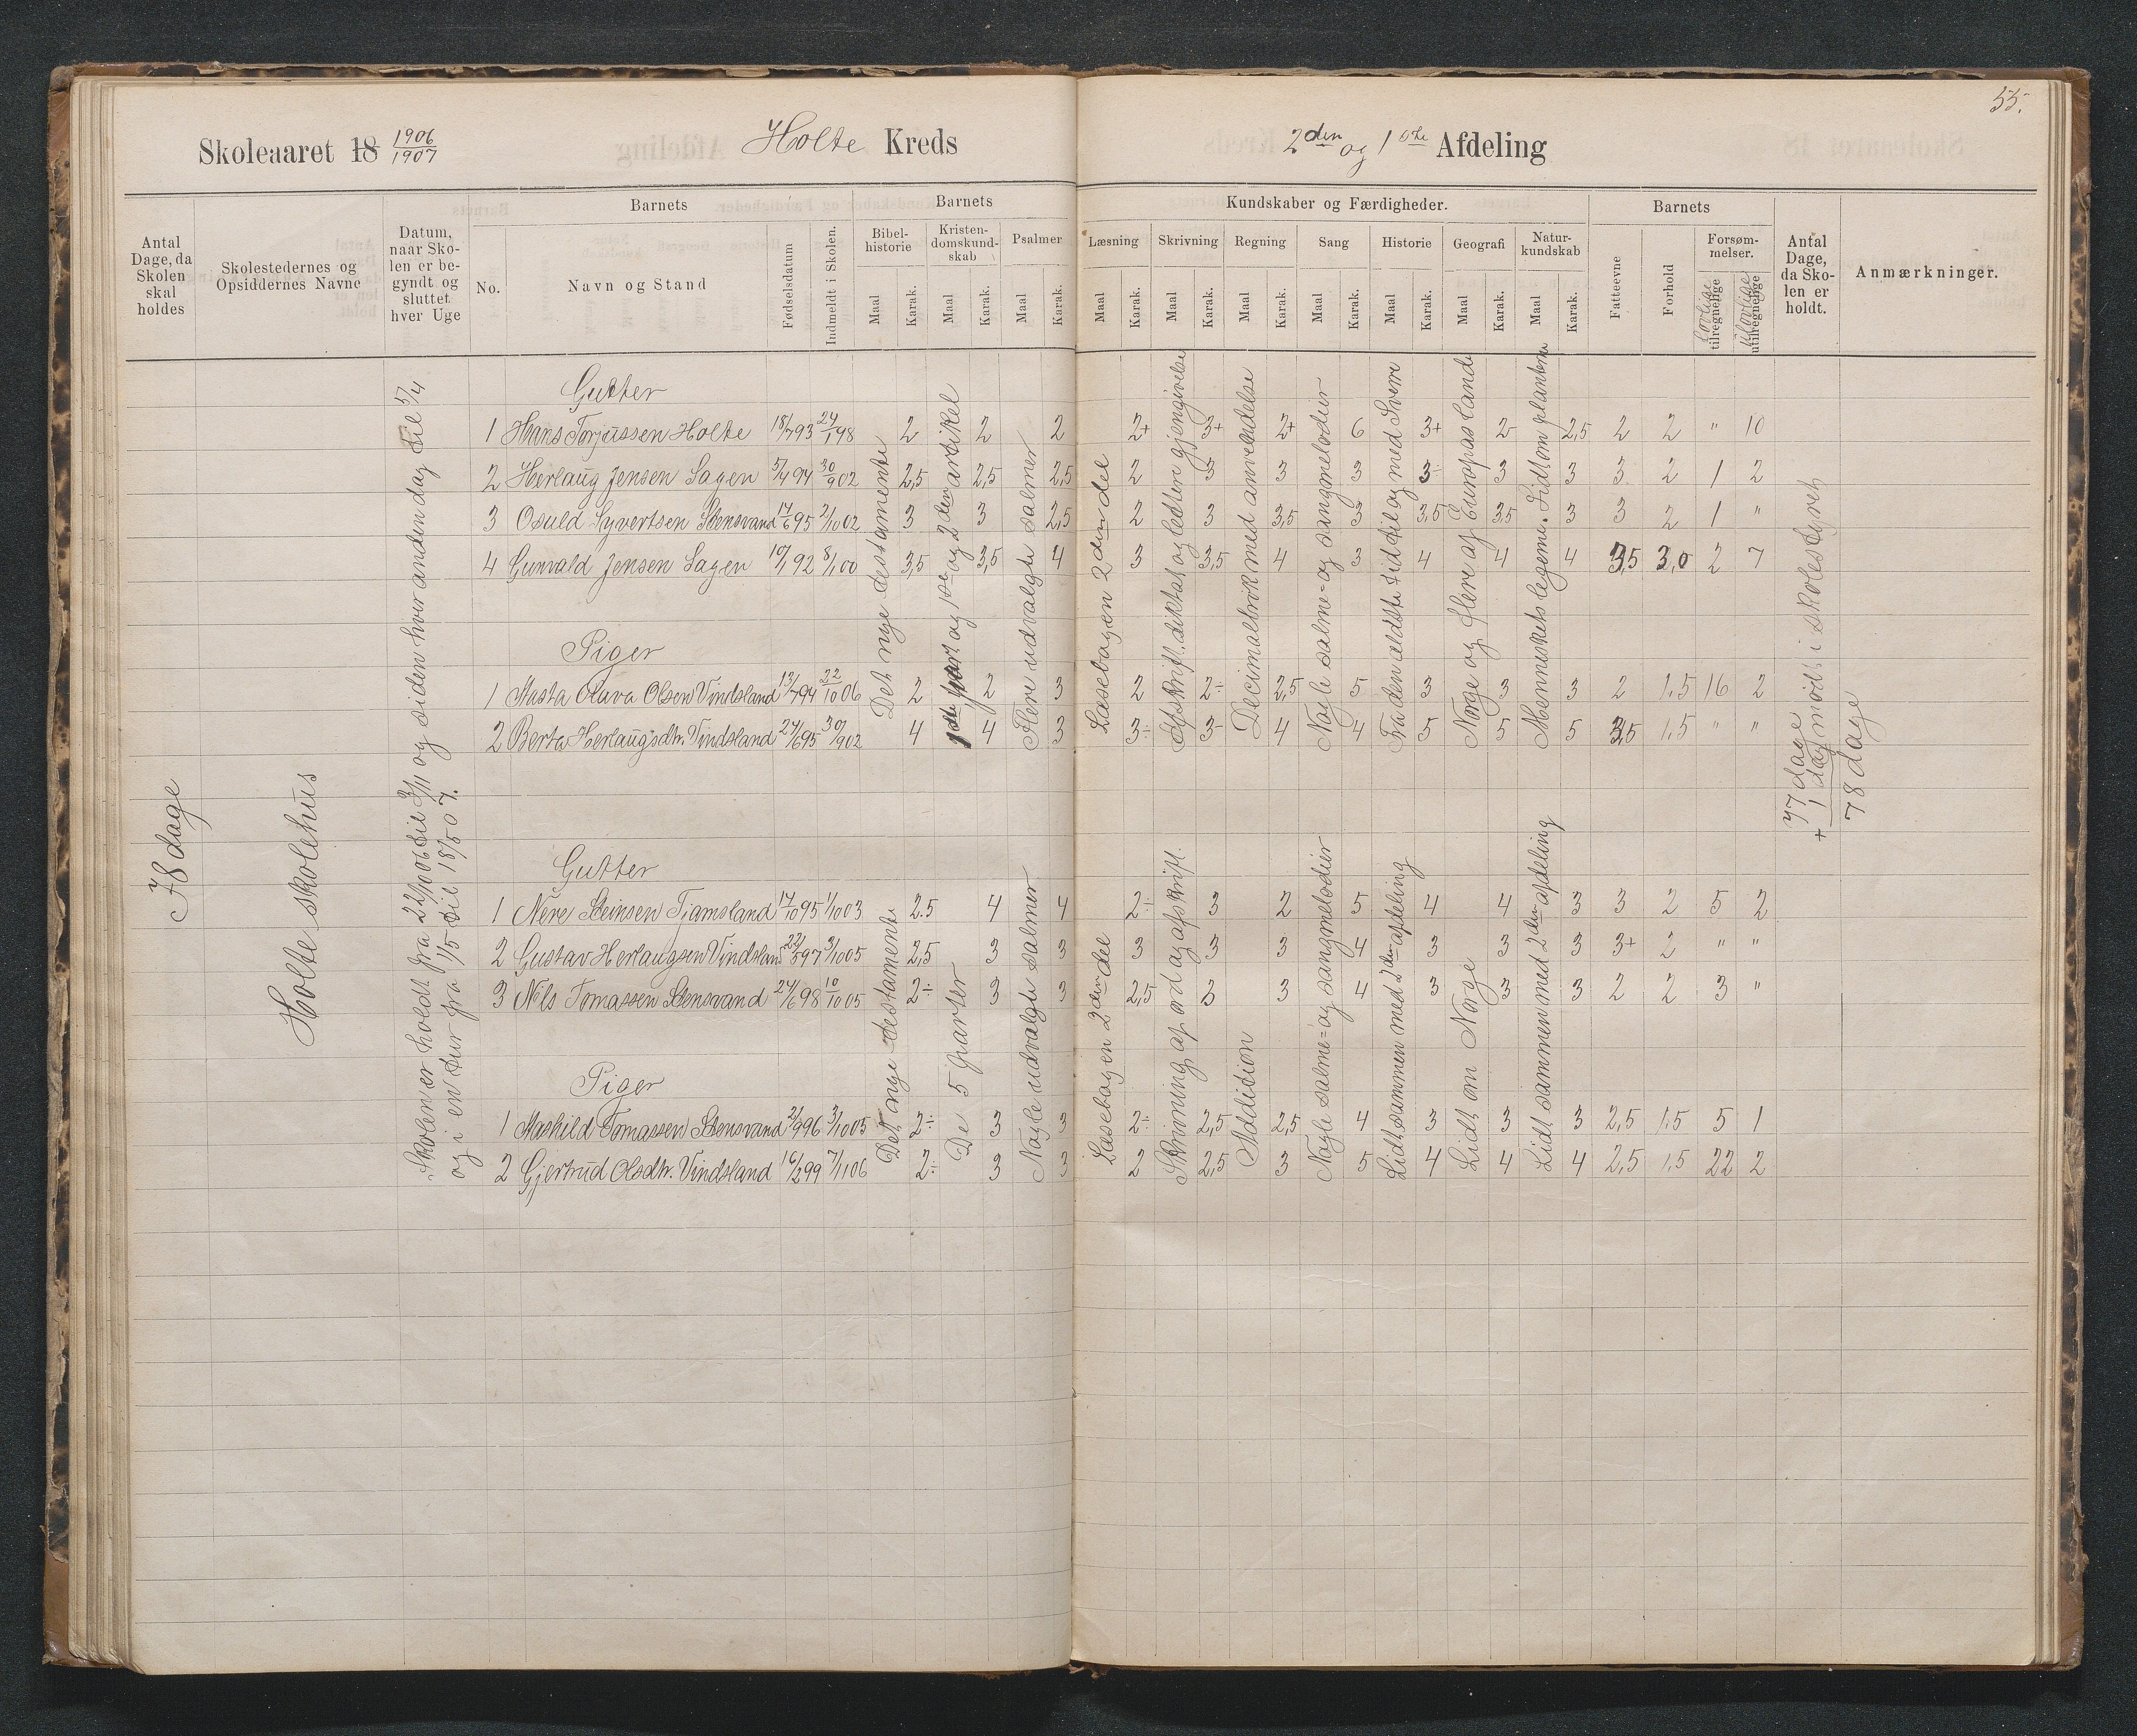 55.
Skoleaaret 18 1906/1907 Holte Kreds 2den og 1ste Afdeling
Antal Dage, da Skolen skal holdes
Skolestedernes og Opsiddernes Navne
Datum, naar Skolen er begyndt og sluttet hver Uge
Barnets
No.
Navn og Stand
Fødselsdatum
Indmeldt i Skolen.
Barnets Kundskaber og Færdigheder.
Bibelhistorie Maal Karak.
Kristendomskundskab Maal Karak.
Psalmer Maal Karak.
Læsning Maal Karak.
Skrivning Maal Karak.
Regning Maal Karak.
Sang Maal Karak.
Historie Maal Karak.
Geografi Maal Karak.
Naturkundskab Maal Karak.
Barnets
Fatteevne
Forhold
Forsømmelser.
tilregnelige
utilregnelige
Antal Dage, da Skolen er holdt.
Anmærkninger.
78 dage
Holte skolehus
Skolen er holdt fra 22/10 06 til 3/11 og siden hver anden dag til 5/4
og i en tur fra 1/5 til 18/5 07.
Gutter
1 Hans Torjussen Holte 18/7 93 24/1 98 2 2 2 2+ 3+ 2+ 6 3+ 2 2,5 2 2 " 10
2 Herlaug Jensen Sagen 5/4 94 30/9 02 2,5 2,5 2,5 2 3 3 3 3÷ 3 3 3 2 1 2
3 Osuld Syvertsen Stensvand 14/6 95 2/10 02 3 3 2,5 2 3 3,5 3 3,5 3,5 3 3 2 1 "
4 Gunvald Jensen Sagen 10/1 92 8/1 00 3,5 3,5 4 3 3,5 4 3 4 4 4 3,5 3,0 2 7
Piger
1 Masta Olava Olsen Vindsland 13/7 94 22/10 06 2 2 3 2 2÷ 2,5 5 3 3 3 2 1,5 16 2
2 Berta Herlaugsdtr. Vindsland 24/6 95 30/9 02 4 4 3 3÷ 3÷ 4 4 5 5 5 3,5 1,5 " "
Det nye testamente
1ste part og 1ste og 2den artikel
Flere udvalgte salmer
Læsebogen 2den del
Afskrift, diktat og lettere gjengivelse
Decimalbrøk med anvendelse
Nogle salme- og sangmelodier
Fra den ældste tid til og med Sverre
Norge og flere af Europas lande
Menneskets legeme. Lidt om planterne
77 dage
+ 1 dag mødt i skolestyret
78 dage
Gutter
1 Nere Steinsen Tjamsland 14/10 95 1/10 03 2.5 4 4 2÷ 3 2 5 4 4 3 3 2 5 2
2 Gustav Herlaugsen Vindsland 22/5 97 3/10 05 2,5 3 3 3 3 3 4 3 3 3 3+ 2 " "
3 Nils Tomassen Stensvand 24/6 98 10/10 05 2÷ 3 3 2,5 3 3 4 3 3 3 2 2 3 "
Piger
1 Mathild Tomassen Stensvand 2/9 96 3/10 05 2÷ 3 3 2÷ 2,5 2,5 4 3 3 3 2,5 1,5 5 1
2 Gjertrud Olsdtr. Vindsland 16/2 99 7/11 06 2÷ 3 3 2 2,5 3 5 4 4 4 2,5 1,5 22 2
Det nye testamente
De 5 parter
Nogle udvalgte salmer
Læsebogen 2den del
Skrivning af ord og afskrift.
Addition
Nogle salme- og sangmelodier
Lidt sammen med 2den afdeling
Lidt om Norge
Lidt sammen med 2den afdeling